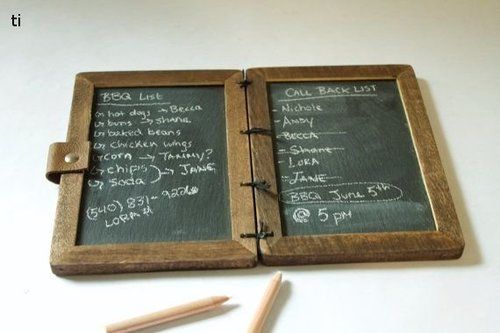 ti
BBQ LIST
hot dogs → Becca
buns → Shana
baked beans
chicken wings
corn → TAMMY?
chips → JANE
Soda
LORA #
CALL BACK LIST
Nichole
ANDY
BECCA
Shane
LORA
JANE
BBQ June 5th
@ 5 PM